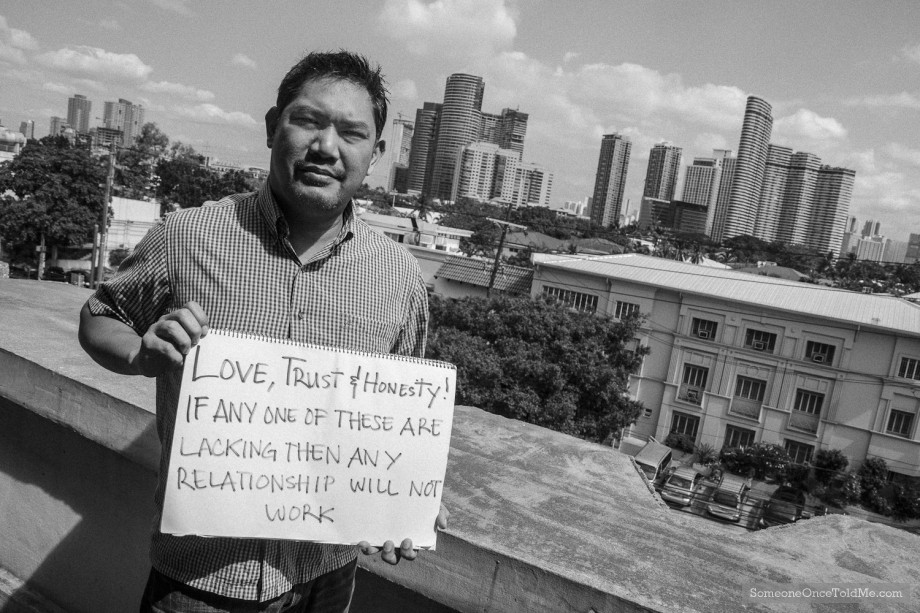 LOVE, TRUST & HONESTY!
IF ANY ONE OF THESE ARE
LACKING THEN ANY
RELATIONSHIP WILL NOT
WORK
SomeoneOnceToldMe.com